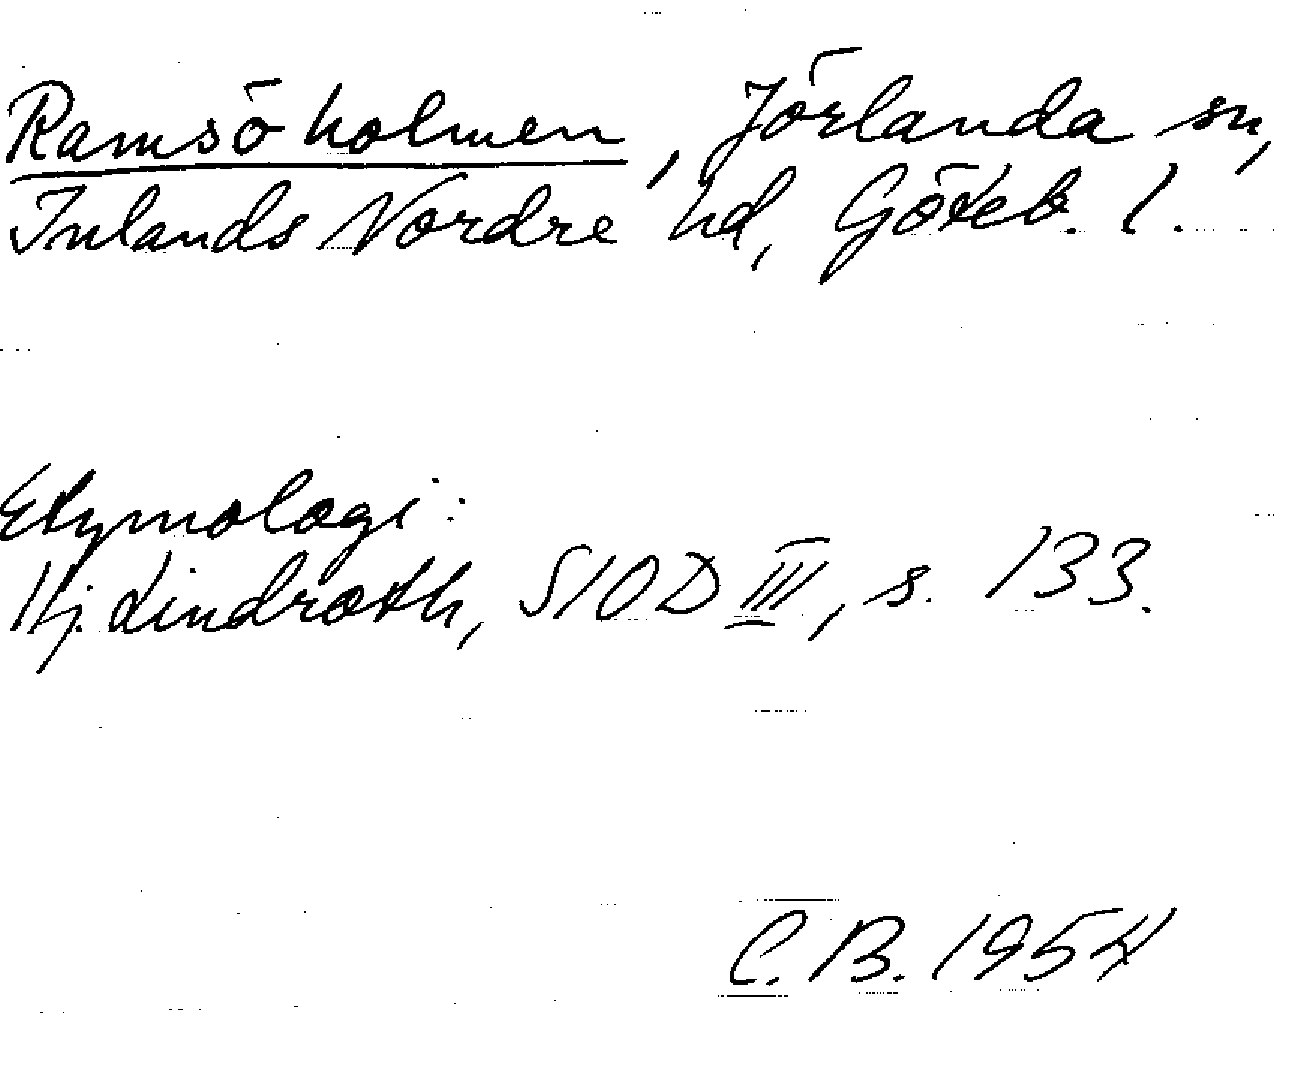 Ramsöholmen, Jörlanda sn,
Inlands Nordre hd, Göteb. l.
Etymologi:
Hj. Lindroth, SIOD III, s. 133.
C. B. 1954